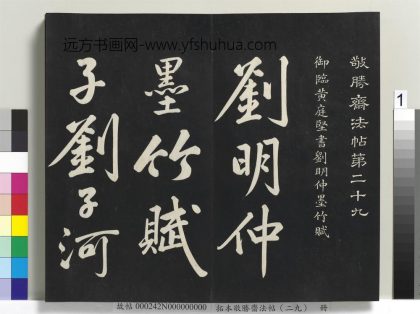 远方书画网-www.yfshuhua.com
敬勝齋法帖第二十九
御臨黃庭堅書劉明仲墨竹賦
劉明仲
墨竹賦
子劉子河
1
故帖 000242N000000000 拓本敬勝齋法帖（二九） 冊